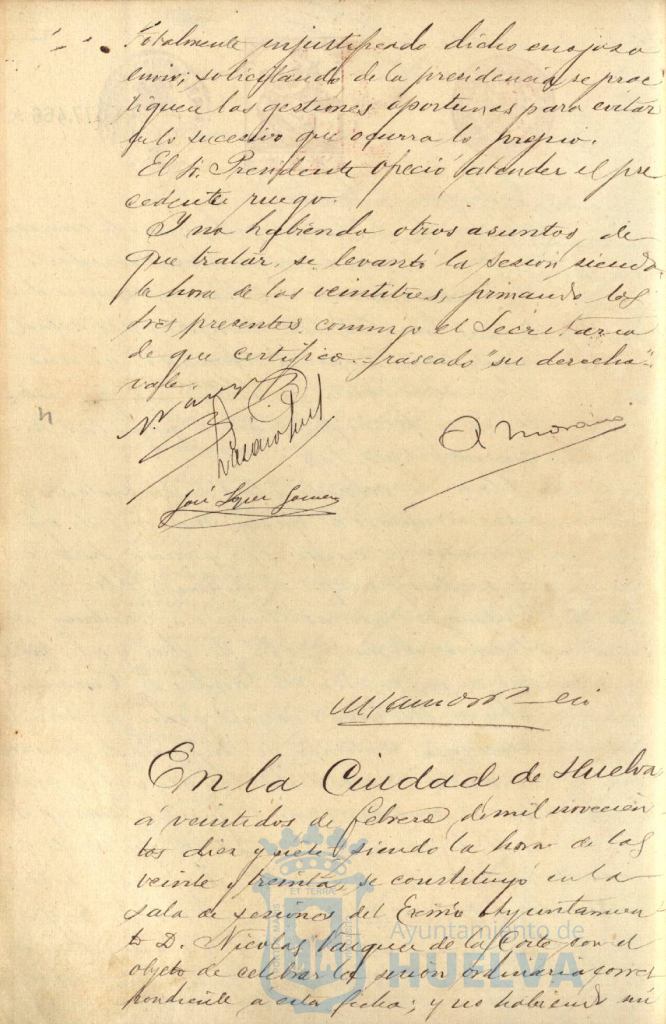 totalmente injustificado dicho enojoso
envio; solicitando de la presidencia se prac
tiquen las gestiones oportunas para evitar
en lo sucesivo que ocurra lo propio.
El Sr. Presidente ofreció atender el pre
cedente ruego.
Y no habiendo otros asuntos de
que tratar, se levantó la sesion siendo
la hora de las veintitres, firmando los
Sres presentes conmigo el Secretario
de que certifico.=rascado "su derecha"
vale.
A Moreno
José Lopez Gomez
En la Ciudad de Huelva
á veintidos de febrero de mil novecien
tos diez y siete siendo la hora de las
veinte y treinta, se constituyó en la
sala de sesiones del Excmo Ayuntamien
to D. Nicolas Vazquez de la Corte con el
objeto de celebrar la sesion ordinaria corres
pondiente a esta fecha; y no habiendo nú
Ayuntamiento de
HUELVA